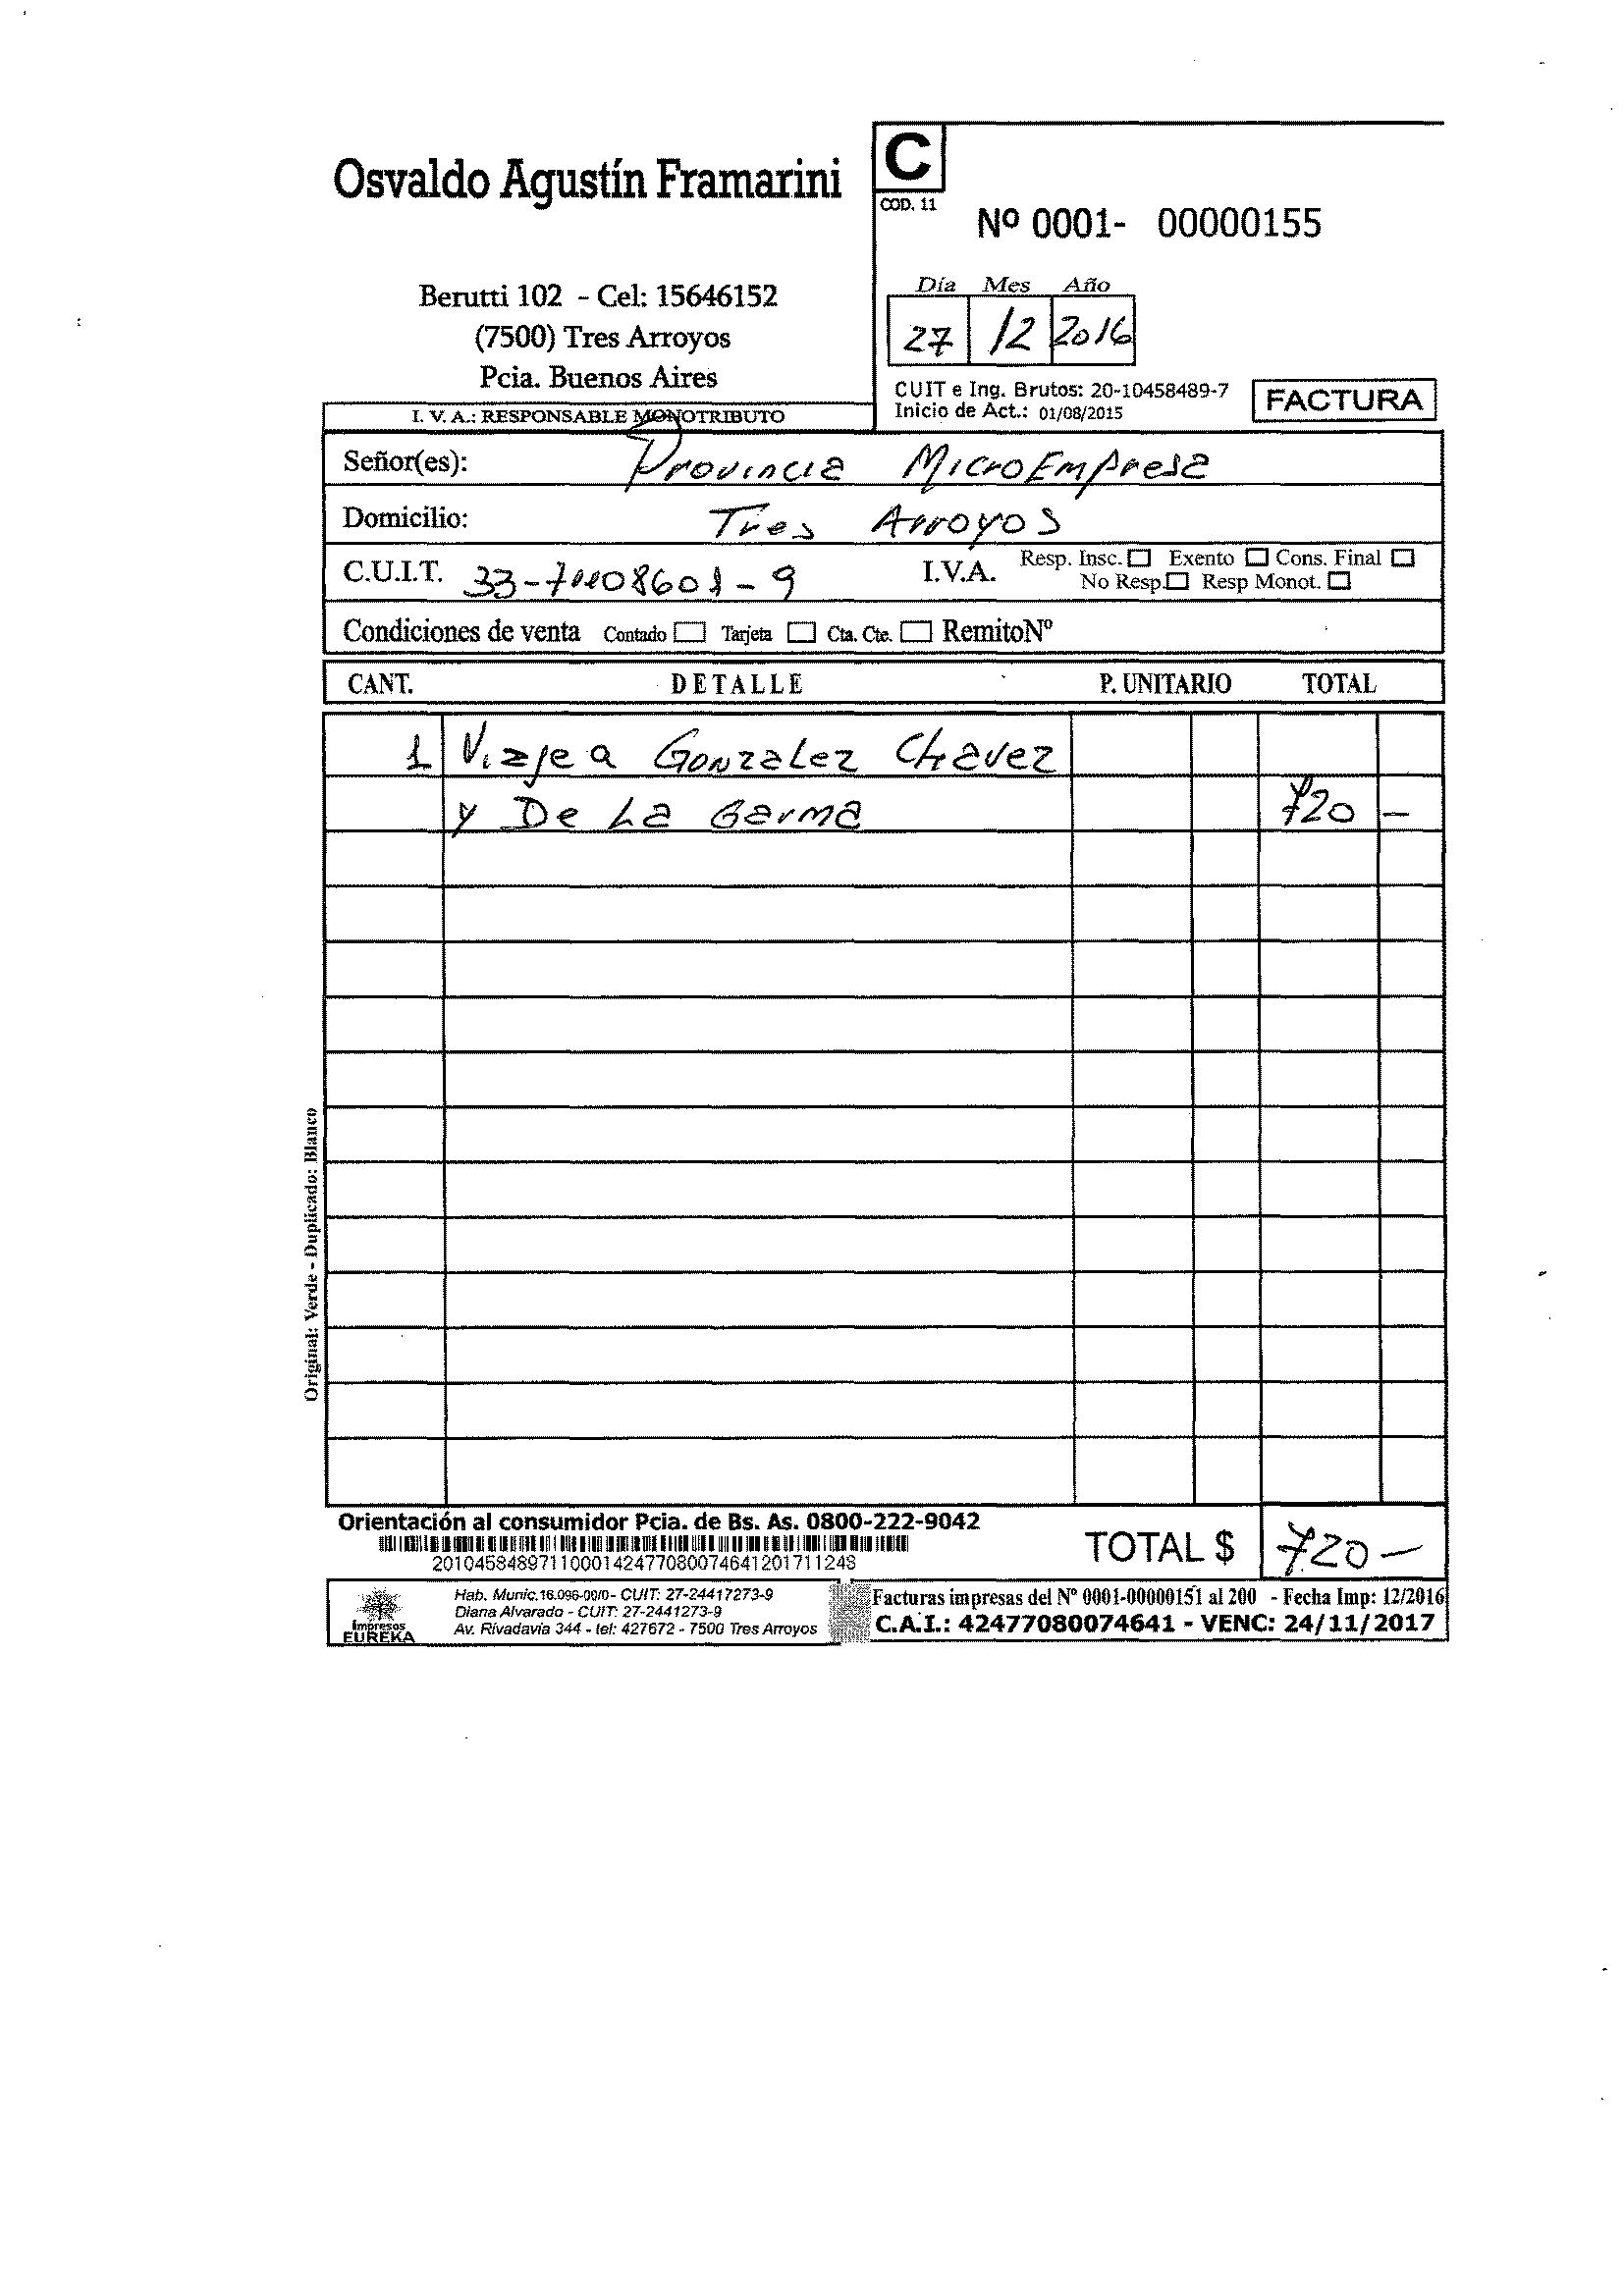 Osvaldo Agustín Framarini
C
COD. 11
Nº 0001- 00000155
Berutti 102 - Cel: 15646152
(7500) Tres Arroyos
Pcia. Buenos Aires
Día Mes Año
27 12 2016
CUIT e Ing. Brutos: 20-10458489-7
Inicio de Act.: 01/08/2015
FACTURA
I. V. A.: RESPONSABLE MONOTRIBUTO
Señor(es): Provincia MicroEmpresa
Domicilio: Tres Arroyos
C.U.I.T. I.V.A. Resp. Insc. Exento Cons. Final
No Resp. Resp Monot.
Condiciones de venta Contado Tarjeta Cta. Cte. RemitoNº
CANT. DETALLE P. UNITARIO TOTAL
1 Viaje a Gonzalez Chavez
y De La Garma 720 -
Original: Verde - Duplicado: Blanco
Orientación al consumidor Pcia. de Bs. As. 0800-222-9042
TOTAL $ 720 -
Impresos
EUREKA
Hab. Munic.16.096-00/0- CUIT: 27-24417273-9
Diana Alvarado - CUIT: 27-2441273-9
Av. Rivadavia 344 - tel: 427672 - 7500 Tres Arroyos
Facturas impresas del Nº 0001-00000151 al 200 - Fecha Imp: 12/2016
C.A.I.: 42477080074641 - VENC: 24/11/2017